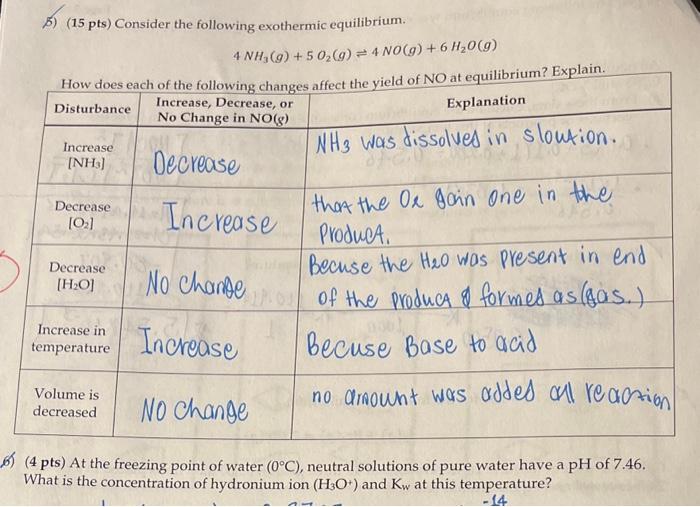 5) (15 pts) Consider the following exothermic equilibrium.
4 NH₃(g) + 5 O₂(g) ⇌ 4 NO(g) + 6 H₂O(g)
How does each of the following changes affect the yield of NO at equilibrium? Explain.
Disturbance
Increase, Decrease, or
No Change in NO(g)
Explanation
Increase
[NH₃]
Decrease
NH3 was dissolved in sloution.
Decrease
[O₂]
Increase
that the O2 gain one in the
product.
Decrease
[H₂O]
No change
Becuse the H2O was present in end
of the product formed as (gas.)
Increase in
temperature
Increase
Becuse Base to acid
Volume is
decreased
No change
no amount was added all reaction
6) (4 pts) At the freezing point of water (0°C), neutral solutions of pure water have a pH of 7.46.
What is the concentration of hydronium ion (H₃O⁺) and Kw at this temperature?
-14